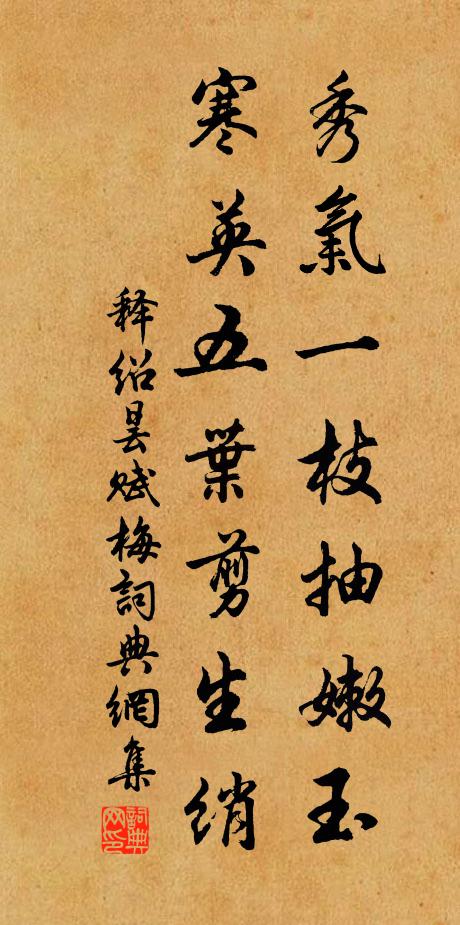 秀氣一枝抽嫩玉
寒英五葉剪生綃
释绍昙赋梅詞典網集
詞典网印